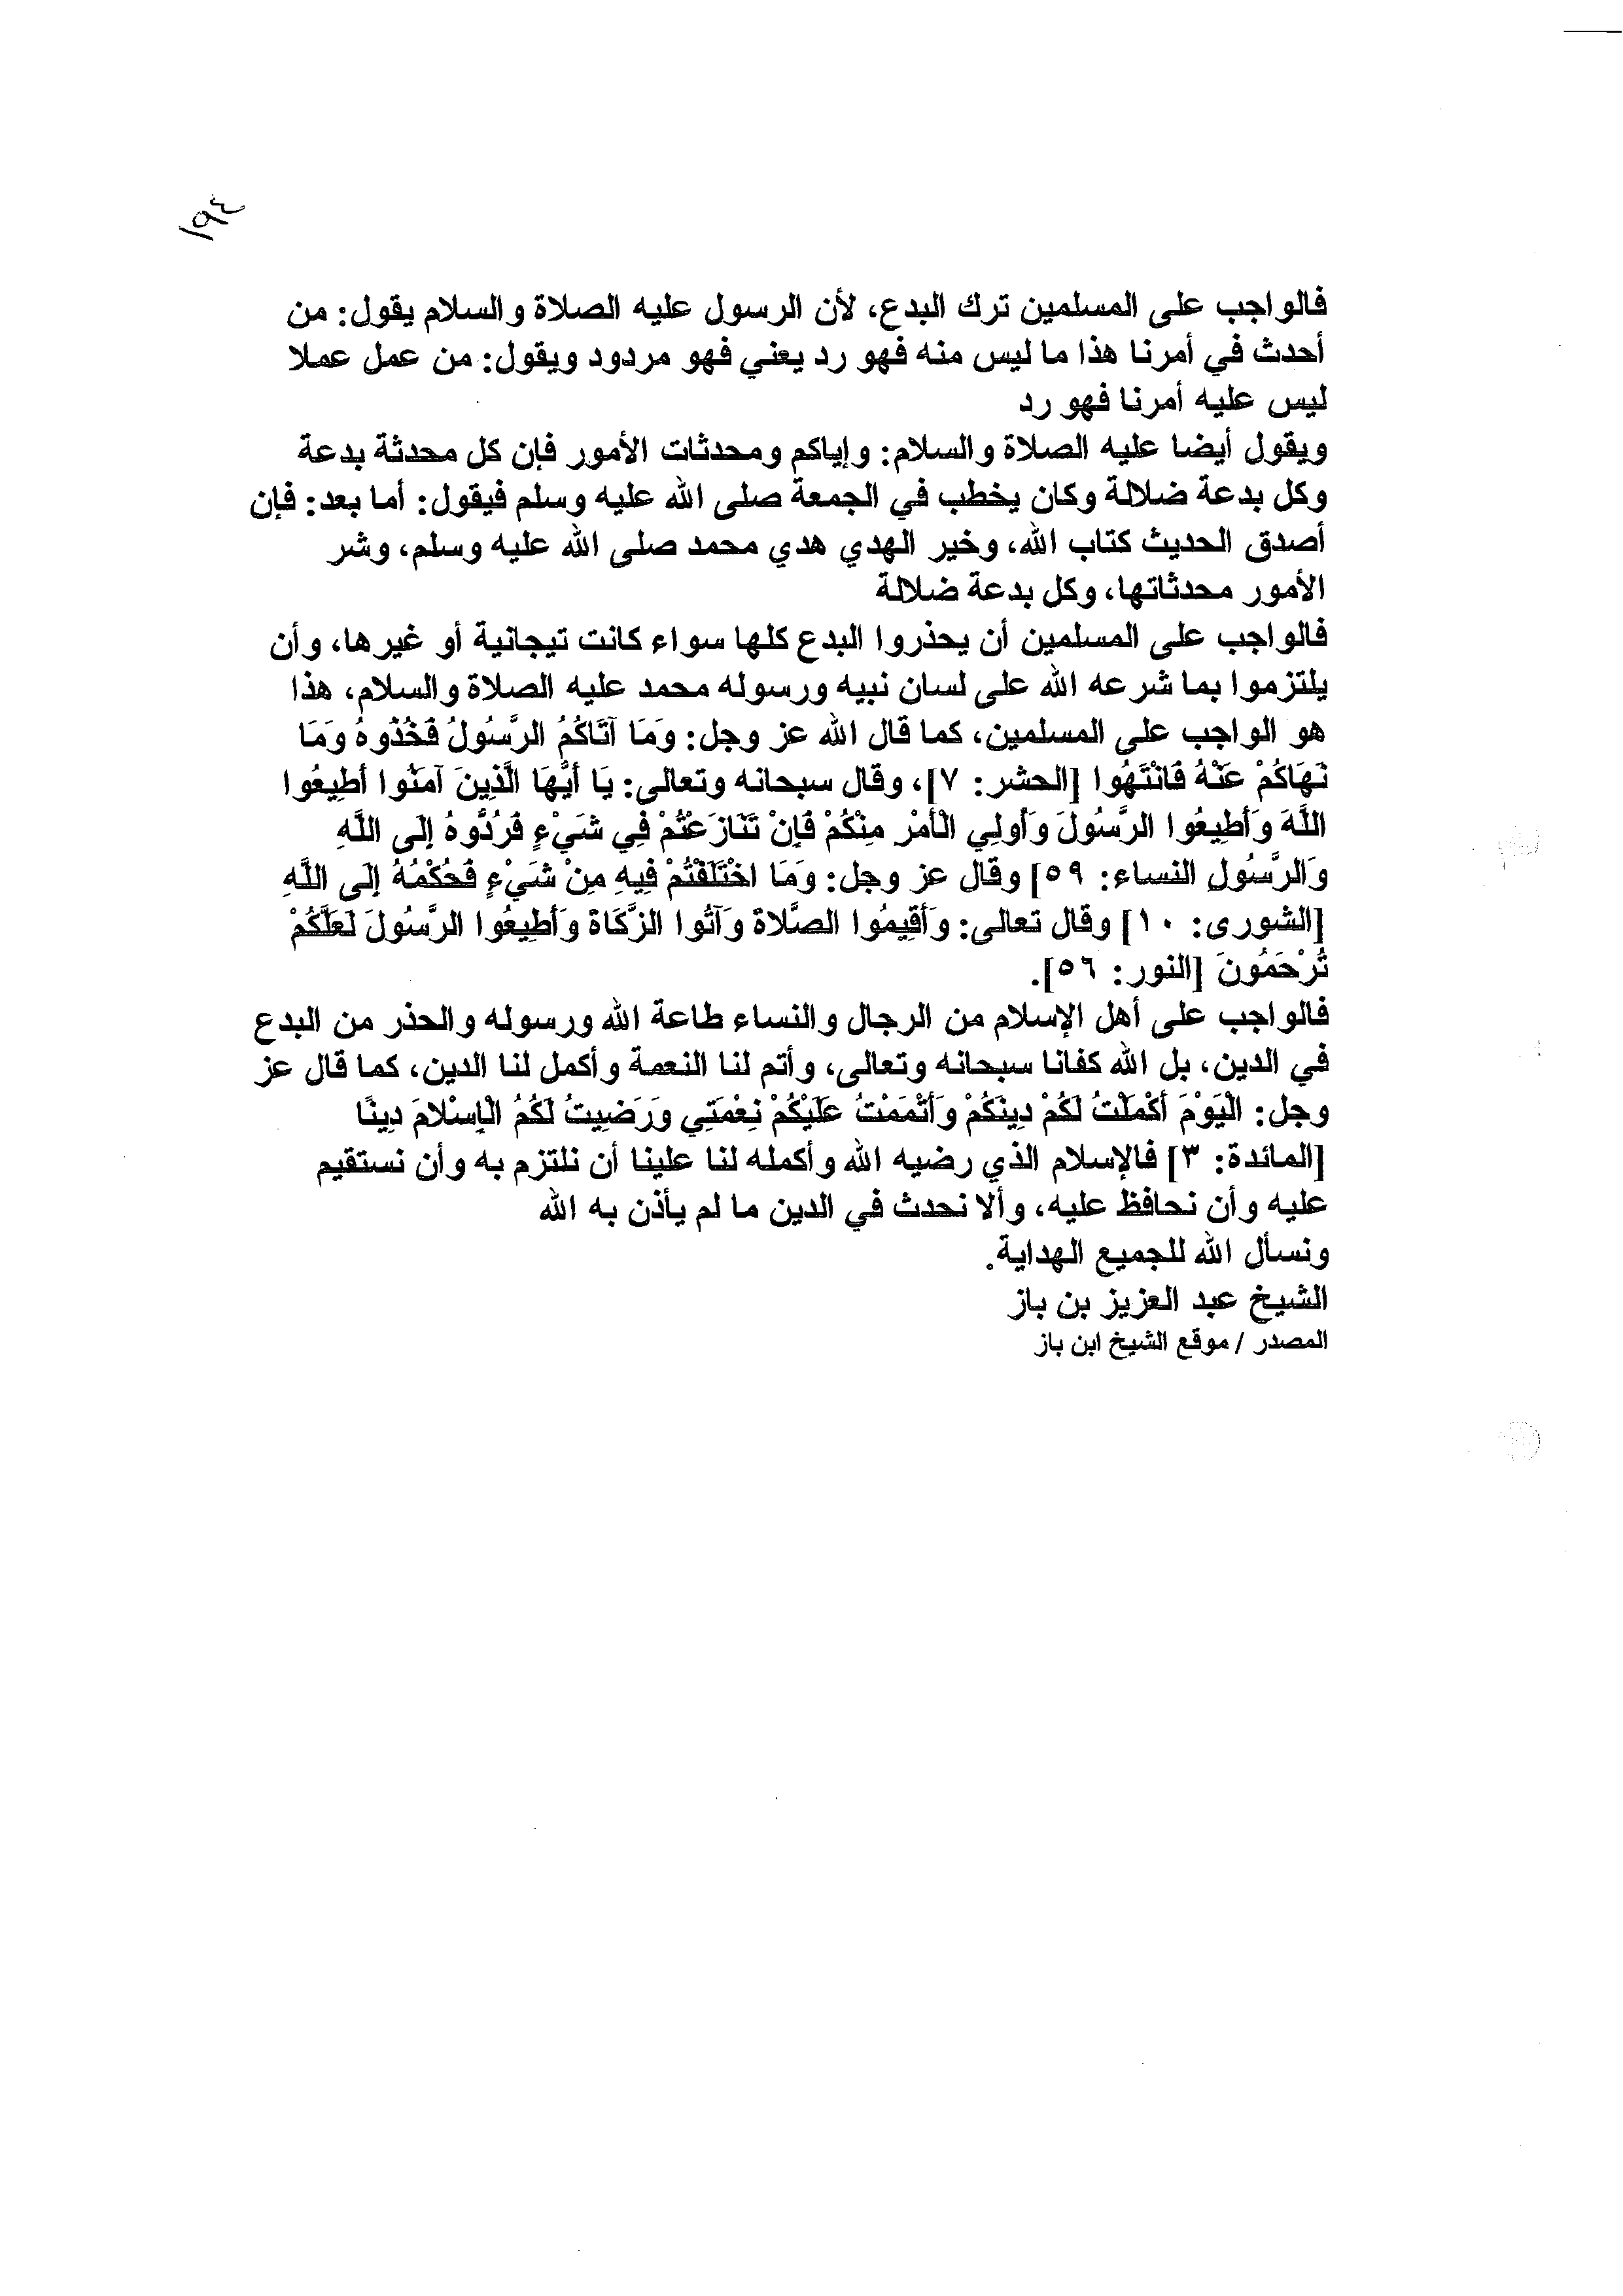 ١٩٤
فالواجب على المسلمين ترك البدع، لأن الرسول عليه الصلاة والسلام يقول: من
أحدث في أمرنا هذا ما ليس منه فهو رد يعني فهو مردود ويقول: من عمل عملا
ليس عليه أمرنا فهو رد
ويقول أيضا عليه الصلاة والسلام: وإياكم ومحدثات الأمور فإن كل محدثة بدعة
وكل بدعة ضلالة وكان يخطب في الجمعة صلى الله عليه وسلم فيقول: أما بعد: فإن
أصدق الحديث كتاب الله، وخير الهدي هدي محمد صلى الله عليه وسلم، وشر
الأمور محدثاتها، وكل بدعة ضلالة
فالواجب على المسلمين أن يحذروا البدع كلها سواء كانت تيجانية أو غيرها، وأن
يلتزموا بما شرعه الله على لسان نبيه ورسوله محمد عليه الصلاة والسلام، هذا
هو الواجب على المسلمين، كما قال الله عز وجل: وَمَا آتَاكُمُ الرَّسُولُ فَخُذُوهُ وَمَا
نَهَاكُمْ عَنْهُ فَانْتَهُوا [الحشر: ٧]، وقال سبحانه وتعالى: يَا أَيُّهَا الَّذِينَ آمَنُوا أَطِيعُوا
اللَّهَ وَأَطِيعُوا الرَّسُولَ وَأُولِي الْأَمْرِ مِنْكُمْ فَإِنْ تَنَازَعْتُمْ فِي شَيْءٍ فَرُدُّوهُ إِلَى اللَّهِ
وَالرَّسُولِ النساء: ٥٩] وقال عز وجل: وَمَا اخْتَلَفْتُمْ فِيهِ مِنْ شَيْءٍ فَحُكْمُهُ إِلَى اللَّهِ
[الشورى: ١٠] وقال تعالى: وَأَقِيمُوا الصَّلَاةَ وَآتُوا الزَّكَاةَ وَأَطِيعُوا الرَّسُولَ لَعَلَّكُمْ
تُرْحَمُونَ [النور: ٥٦].
فالواجب على أهل الإسلام من الرجال والنساء طاعة الله ورسوله والحذر من البدع
في الدين، بل الله كفانا سبحانه وتعالى، وأتم لنا النعمة وأكمل لنا الدين، كما قال عز
وجل: الْيَوْمَ أَكْمَلْتُ لَكُمْ دِينَكُمْ وَأَتْمَمْتُ عَلَيْكُمْ نِعْمَتِي وَرَضِيتُ لَكُمُ الْإِسْلَامَ دِينًا
[المائدة: ٣] فالإسلام الذي رضيه الله وأكمله لنا علينا أن نلتزم به وأن نستقيم
عليه وأن نحافظ عليه، وألا نحدث في الدين ما لم يأذن به الله
ونسأل الله للجميع الهداية.
الشيخ عبد العزيز بن باز
المصدر / موقع الشيخ ابن باز